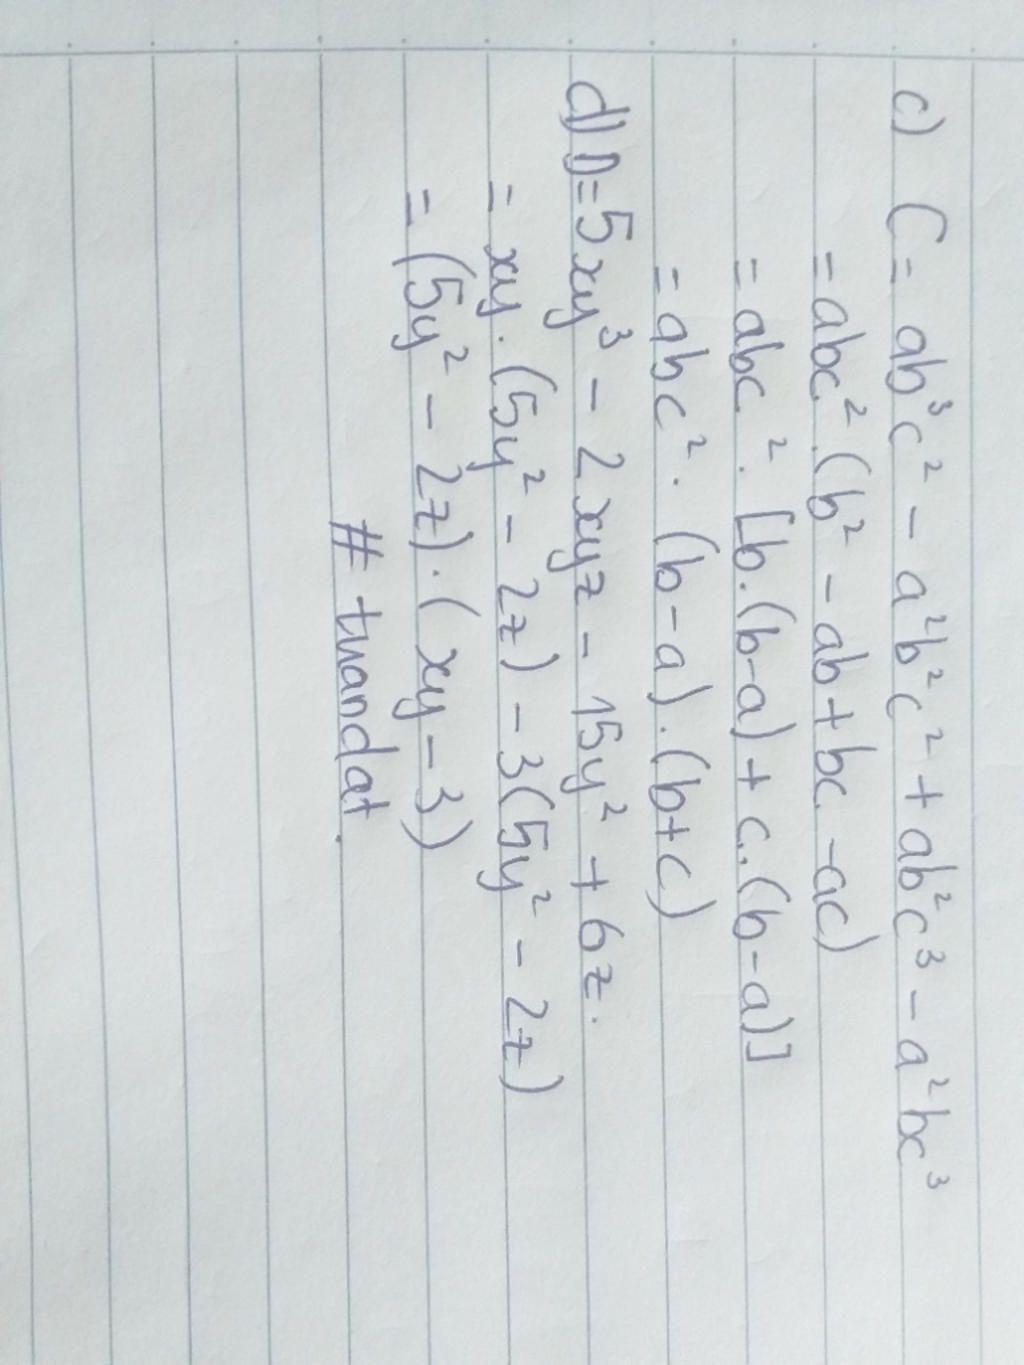 c) C = ab³c² - a²b²c² + ab²c³ - a²bc³
= abc².(b² - ab + bc - ac)
= abc². [b.(b-a) + c.(b-a)]
= abc². (b-a).(b+c)
d) D = 5xy³ - 2xyz - 15y² + 6z.
= xy.(5y² - 2z) - 3(5y² - 2z)
= (5y² - 2z).(xy - 3)
# tuandat.